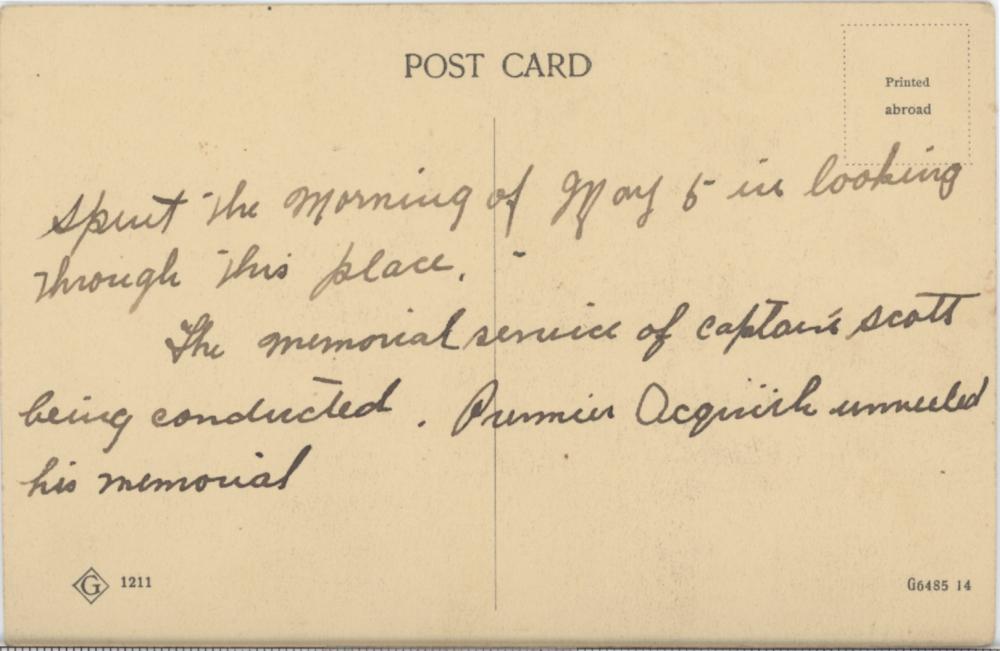 POST CARD
Printed
abroad
Spent the Morning of May 5 in looking
through this place. -
The memorial service of captain scott
being conducted. Premier Acquish unveiled
his memorial
G 1211
G6485 14